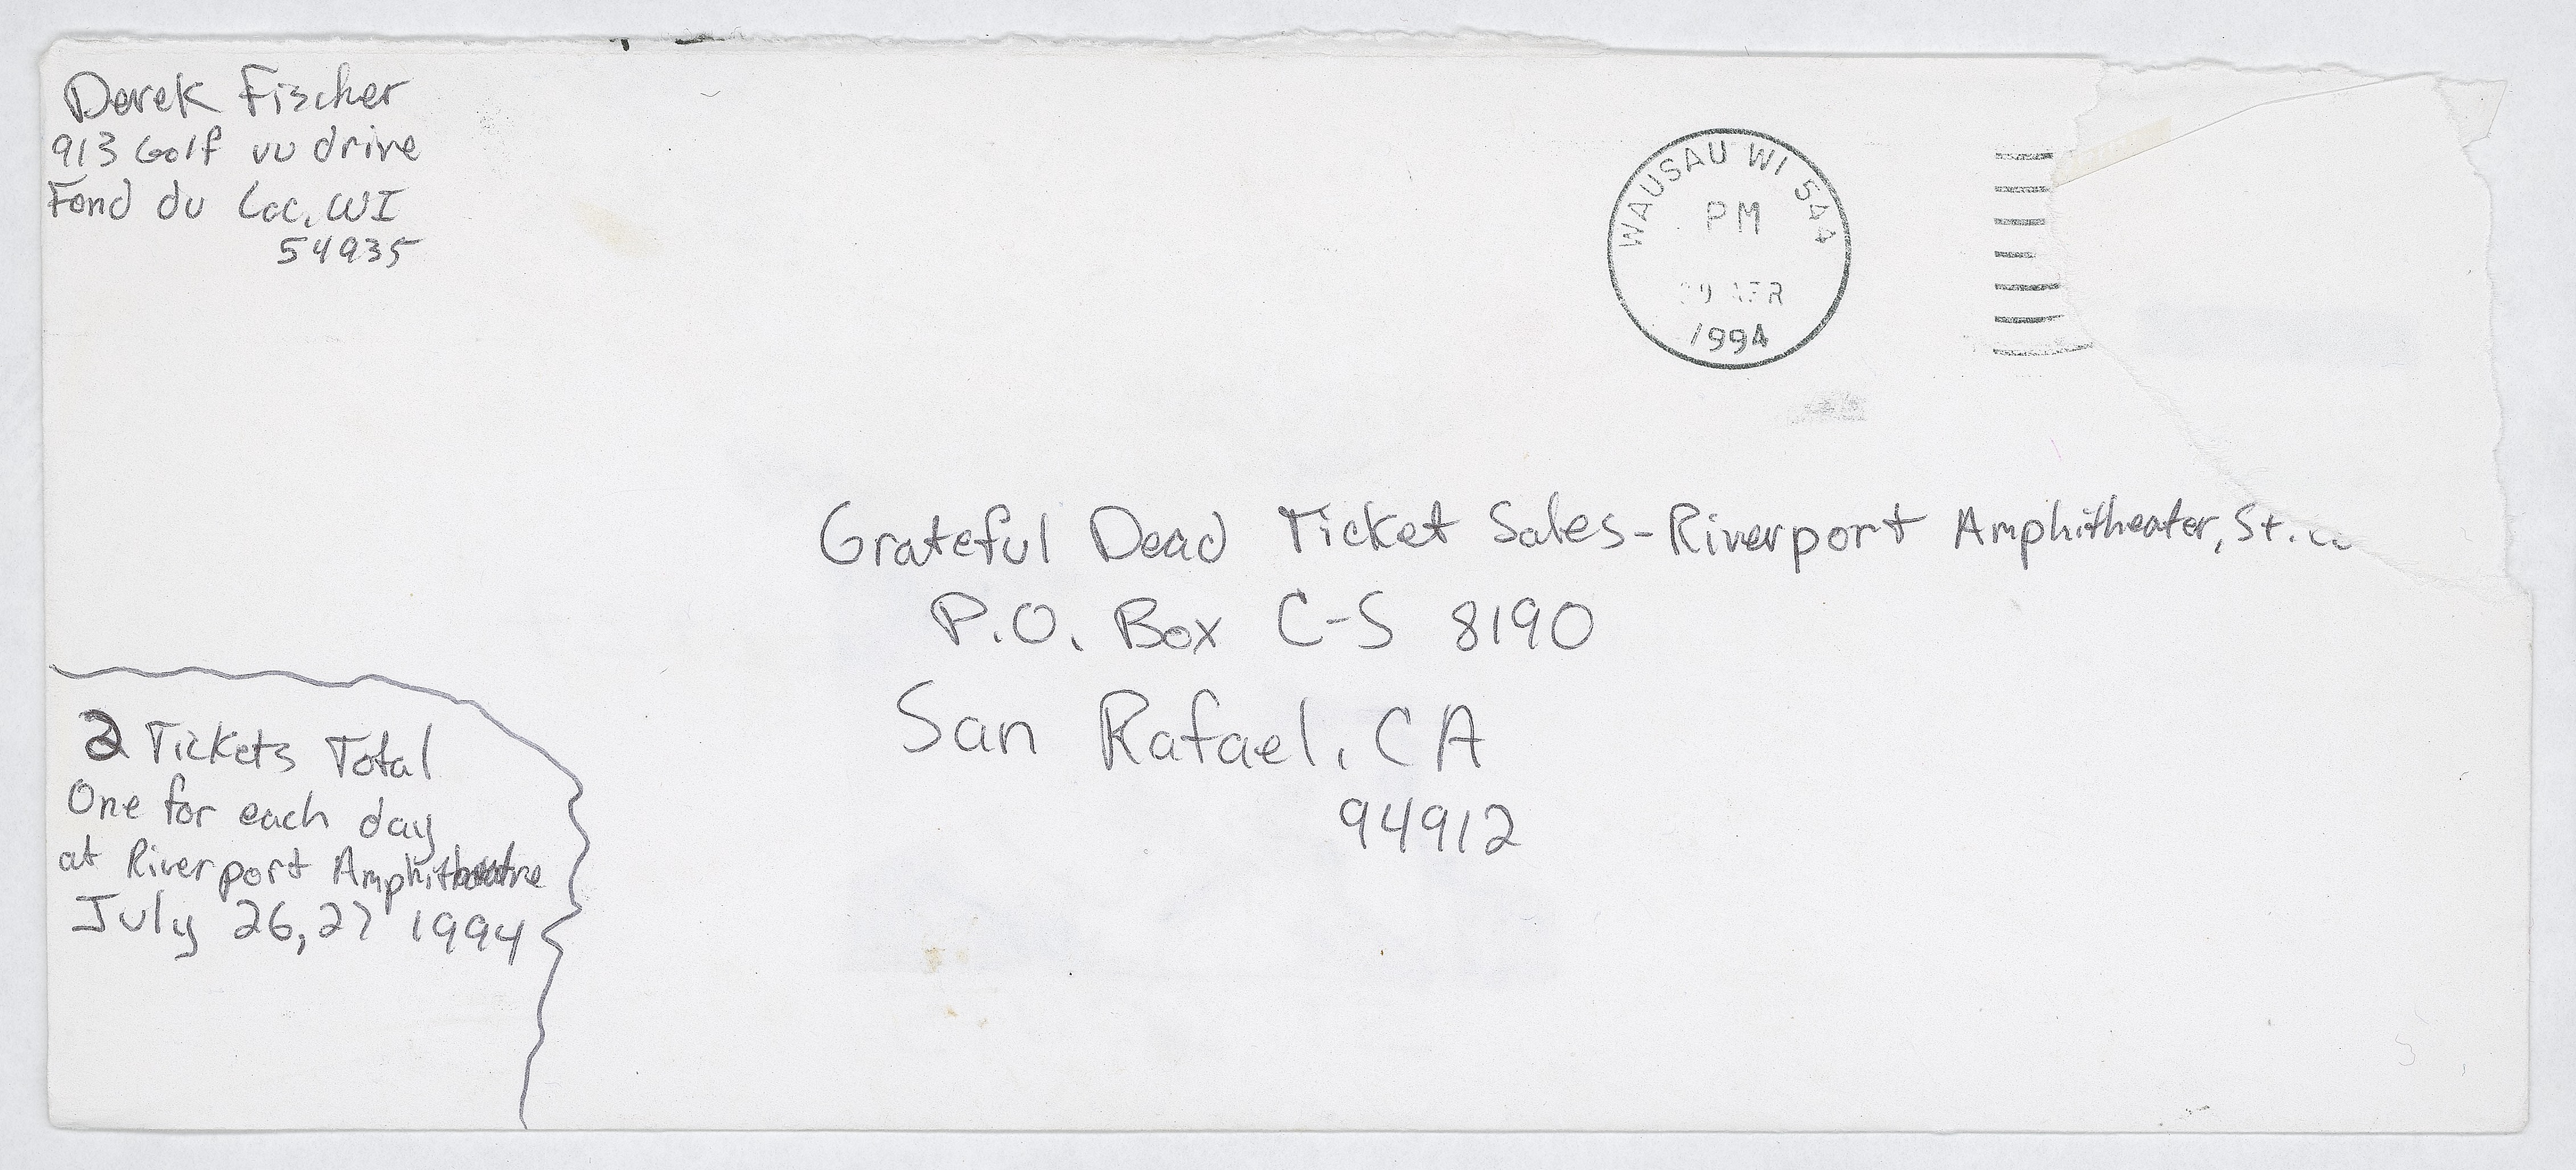 Derek Fischer
913 Golf vu drive
Fond du Lac, WI
54935
WAUSAU WI 544
PM
APR
1994
Grateful Dead Ticket Sales-Riverport Amphitheater, St.
P.O. Box C-S 8190
San Rafael, CA
94912
2 Tickets Total
One for each day
at Riverport Amphitheatre
July 26,27 1994